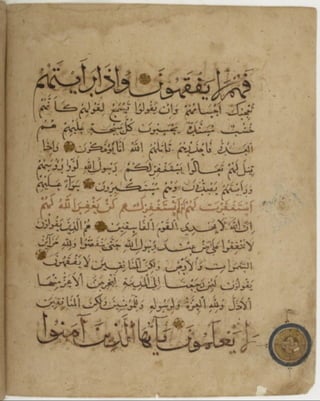 فهم لا يفقهون واذا رايتهم
تعجبك اجسامهم وان يقولوا تسمع لقولهم كانهم
خشب مسندة يحسبون كل صيحة عليهم هم
العدو فاحذرهم قاتلهم الله انى يؤفكون واذا
قيل لهم تعالوا يستغفر لكم رسول الله لووا رؤسهم
ورايتهم يصدون وهم مستكبرون سواء عليهم
استغفرت لهم ام لم تستغفر لهم لن يغفر الله لهم
ان الله لا يهدي القوم الفاسقين هم الذين يقولون
لا تنفقوا على من عند رسول الله حتى ينفضوا ولله خزاين
السموات والارض ولكن المنافقين لا يفقهون
يقولون لئن رجعنا الى المدينة ليخرجن الاعز منها
الاذل ولله العزة ولرسوله وللمؤمنين ولكن المنافقين
لا يعلمون يايها الذين آمنوا